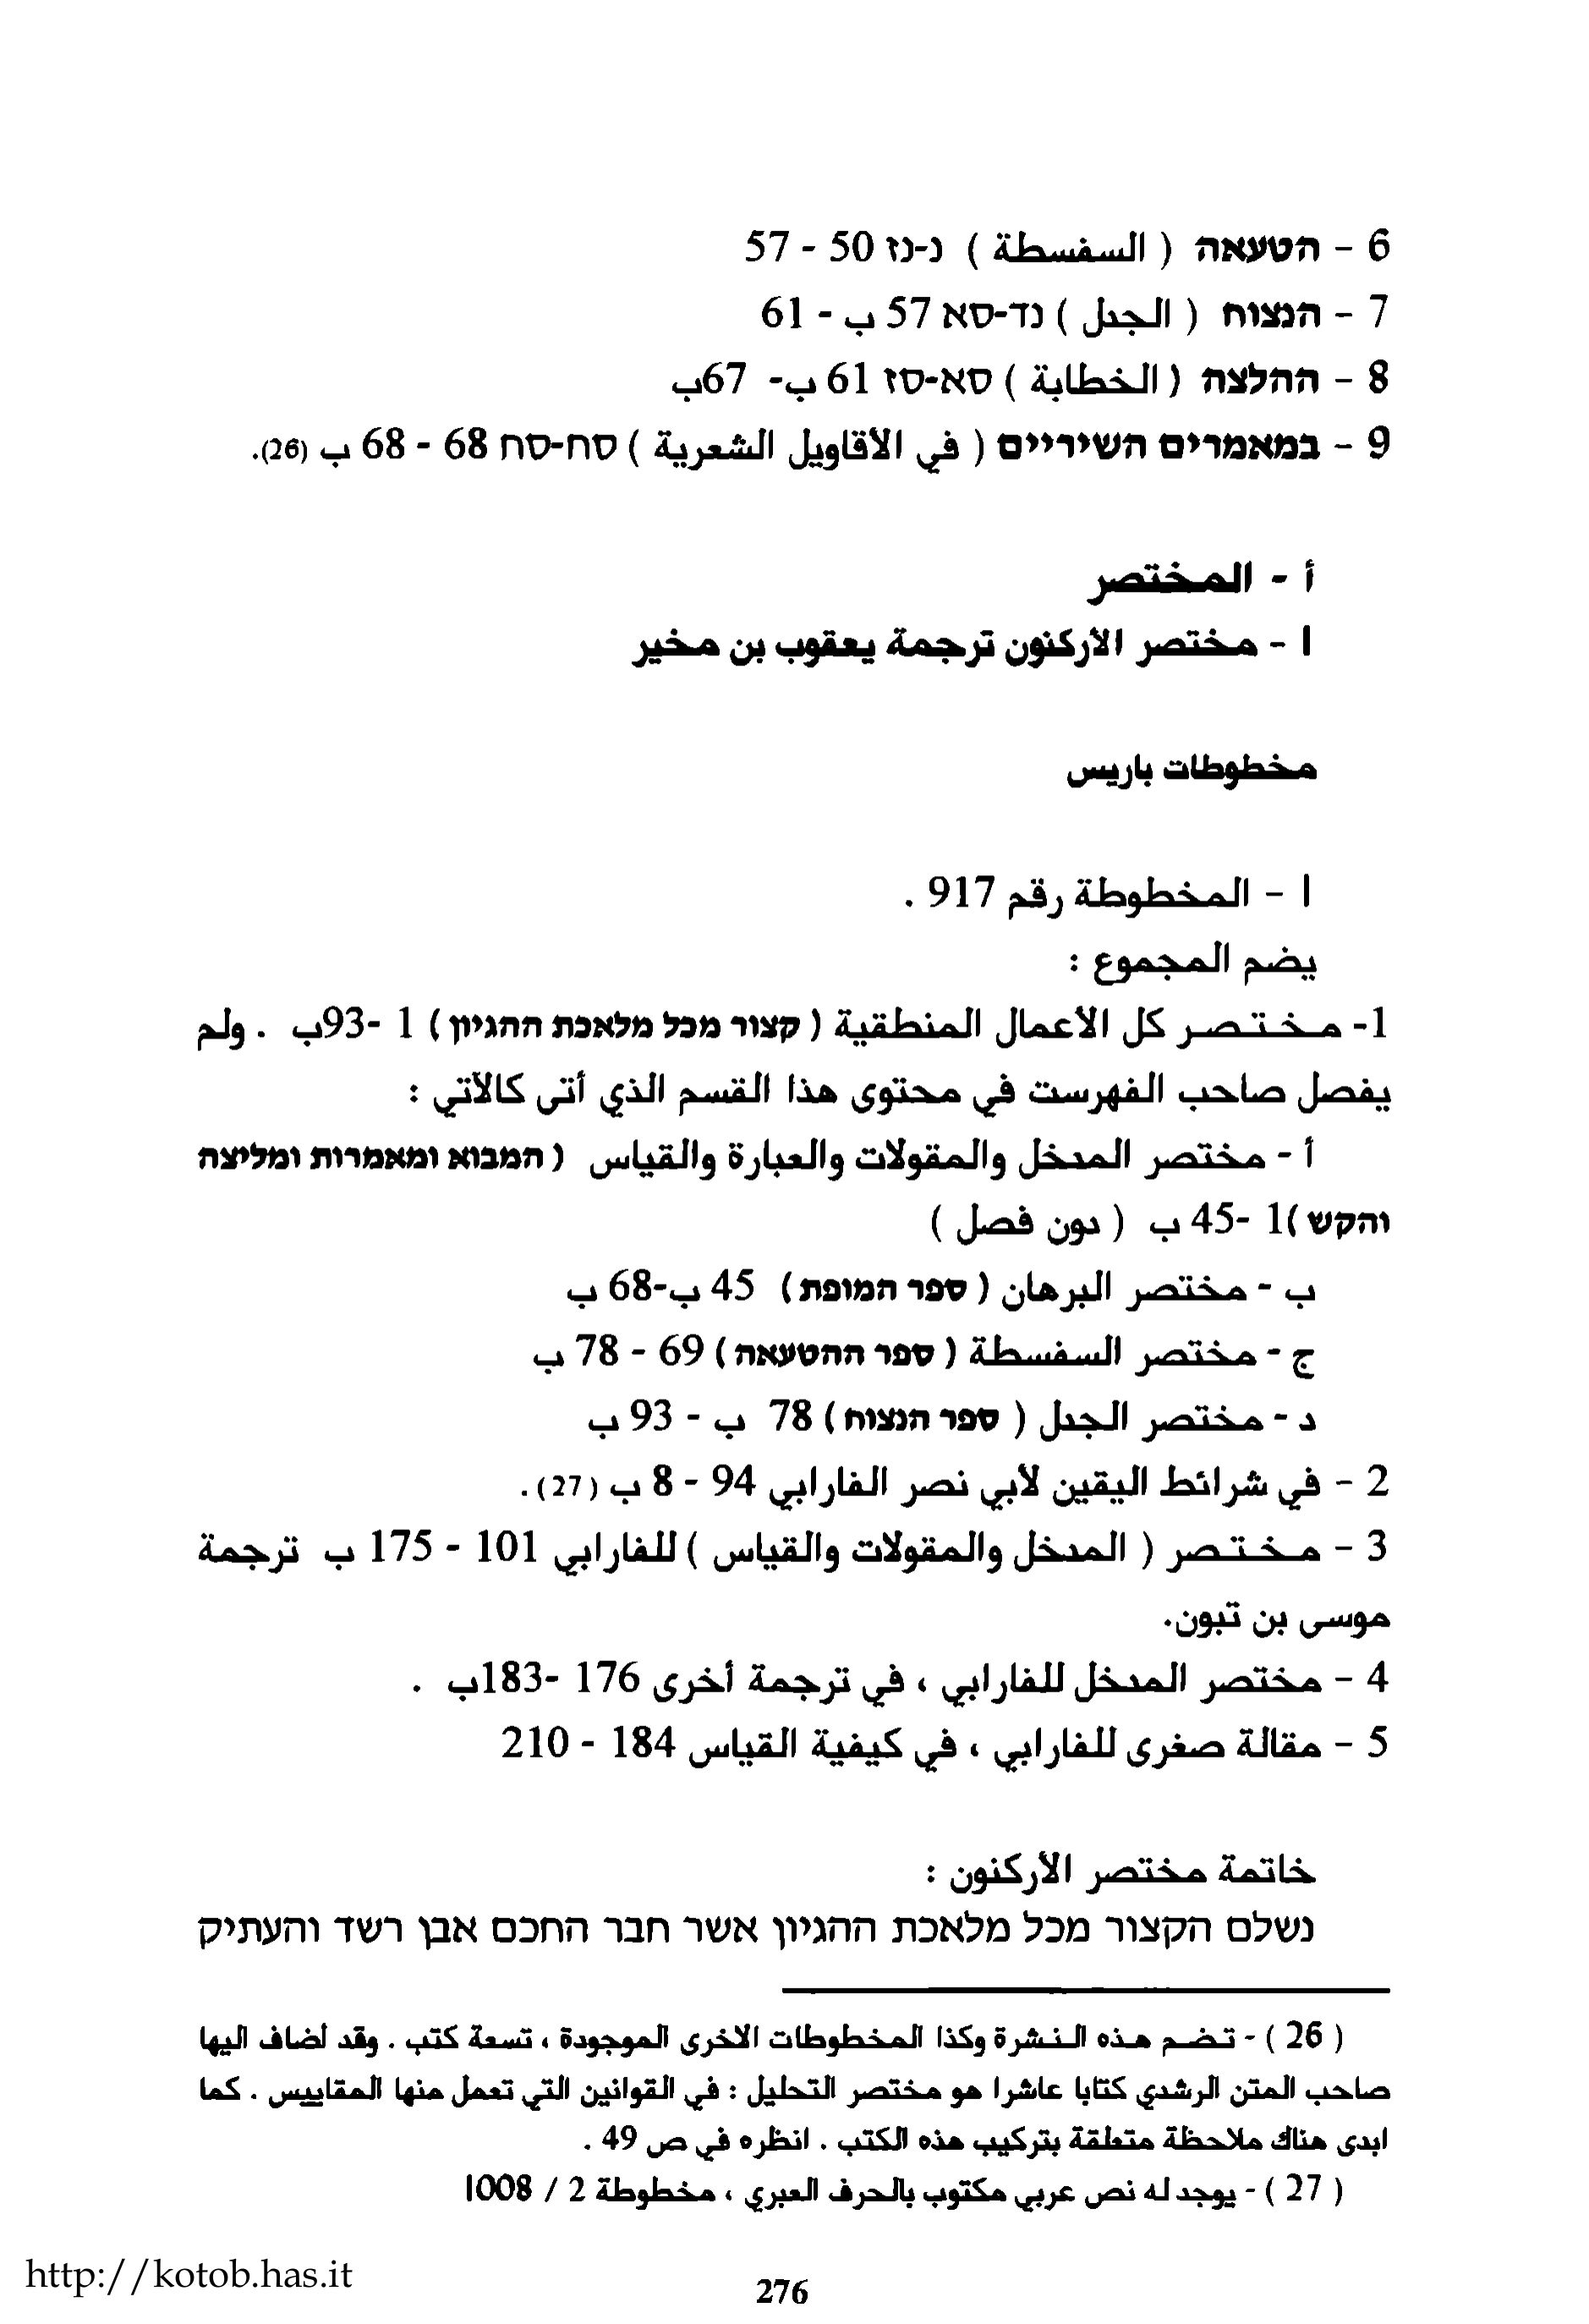 6 - הטעאה ( السفسطة ) נ-נז 50 - 57
7 - הנצוח ( الجدل ) נד-סא 57 ب - 61
8 - ההלצה ( الخطابة ) סא-סז 61 ب- 67ب
9 - במאמרים השיריים ( في الأقاويل الشعرية ) סח-סח 68 - 68 ب (26).
أ - المختصر
I - مختصر الأركنون ترجمة يعقوب بن مخير
مخطوطات باريس
I - المخطوطة رقم 917 .
يضم المجموع :
1- مختصر كل الأعمال المنطقية ( קצור מכל מלאכת ההגיון ) 1 -93ب . ولم
يفصل صاحب الفهرست في محتوى هذا القسم الذي أتى كالآتي :
أ - مختصر المدخل والمقولات والعبارة والقياس ( המבוא ומאמרות ומליצה
והקש )1 -45 ب ( دون فصل )
ب - مختصر البرهان ( ספר המופת ) 45 ب-68 ب
ج - مختصر السفسطة ( ספר ההטעאה ) 69 - 78 ب
د - مختصر الجدل ( ספר הנצוח ) 78 ب - 93 ب
2 - في شرائط اليقين لأبي نصر الفارابي 94 - 8 ب (27) .
3 - مختصر ( المدخل والمقولات والقياس ) للفارابي 101 - 175 ب ترجمة
موسى بن تبون.
4 - مختصر المدخل للفارابي ، في ترجمة أخرى 176 -183ب .
5 - مقالة صغرى للفارابي ، في كيفية القياس 184 - 210
خاتمة مختصر الأركنون :
נשלם הקצור מכל מלאכת ההגיון אשר חבר החכם אבן רשד והעתיק
( 26 ) - تضم هذه النشرة وكذا المخطوطات الاخرى الموجودة ، تسعة كتب . وقد أضاف اليها
صاحب المتن الرشدي كتابا عاشرا هو مختصر التحليل : في القوانين التي تعمل منها المقاييس . كما
ابدى هناك ملاحظة متعلقة بتركيب هذه الكتب . انظره في ص 49 .
( 27 ) - يوجد له نص عربي مكتوب بالحرف العبري ، مخطوطة 2 / 1008
http://kotob.has.it
276